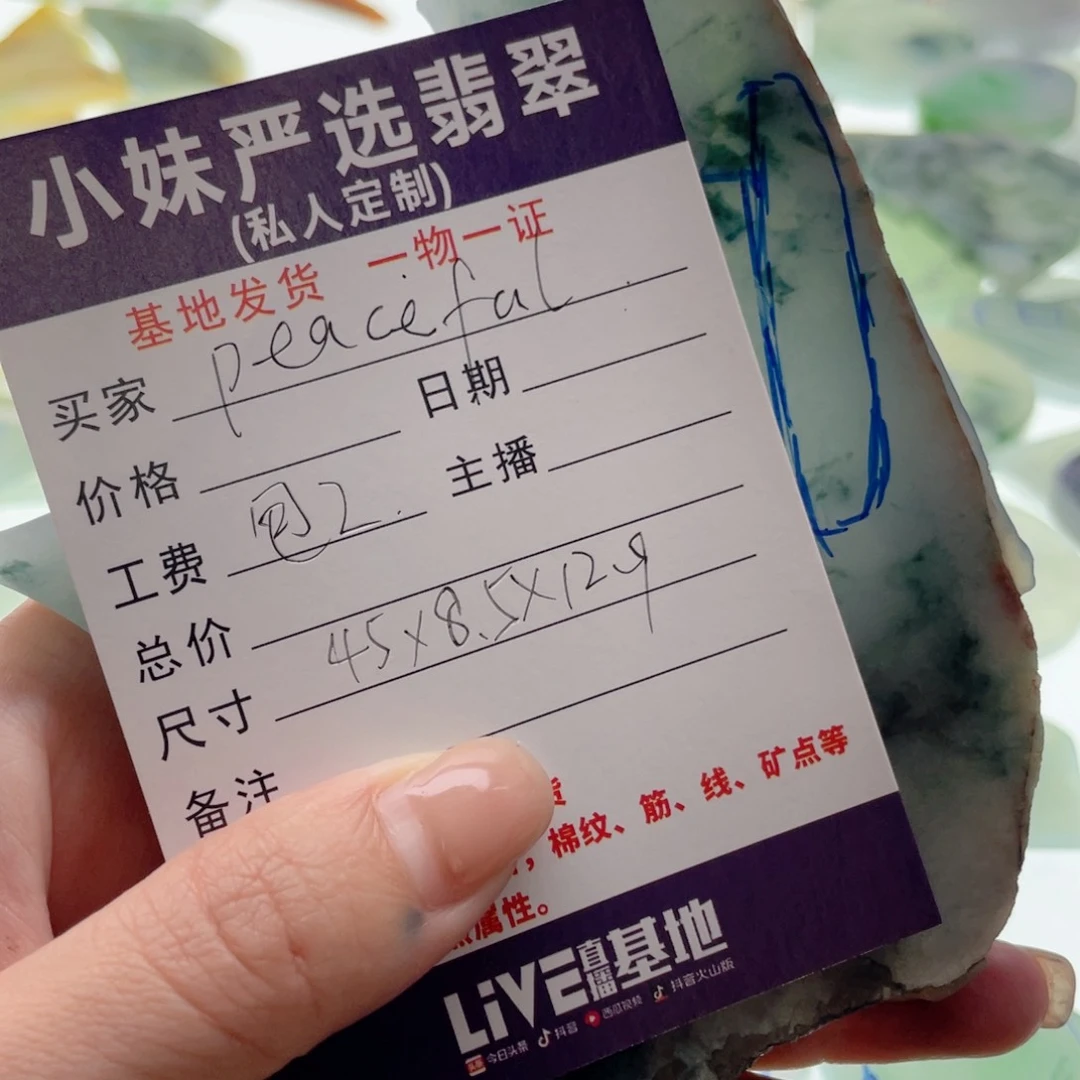 小妹严选翡翠
(私人定制)
基地发货 一物一证
买家 peaceful. 日期
价格 主播
工费 包工.
总价
尺寸 45×8.5×12.9
备注
货
，棉纹、筋、线、矿点等
属性。
LiVE直播基地
今日头条 抖音 西瓜视频 抖音火山版